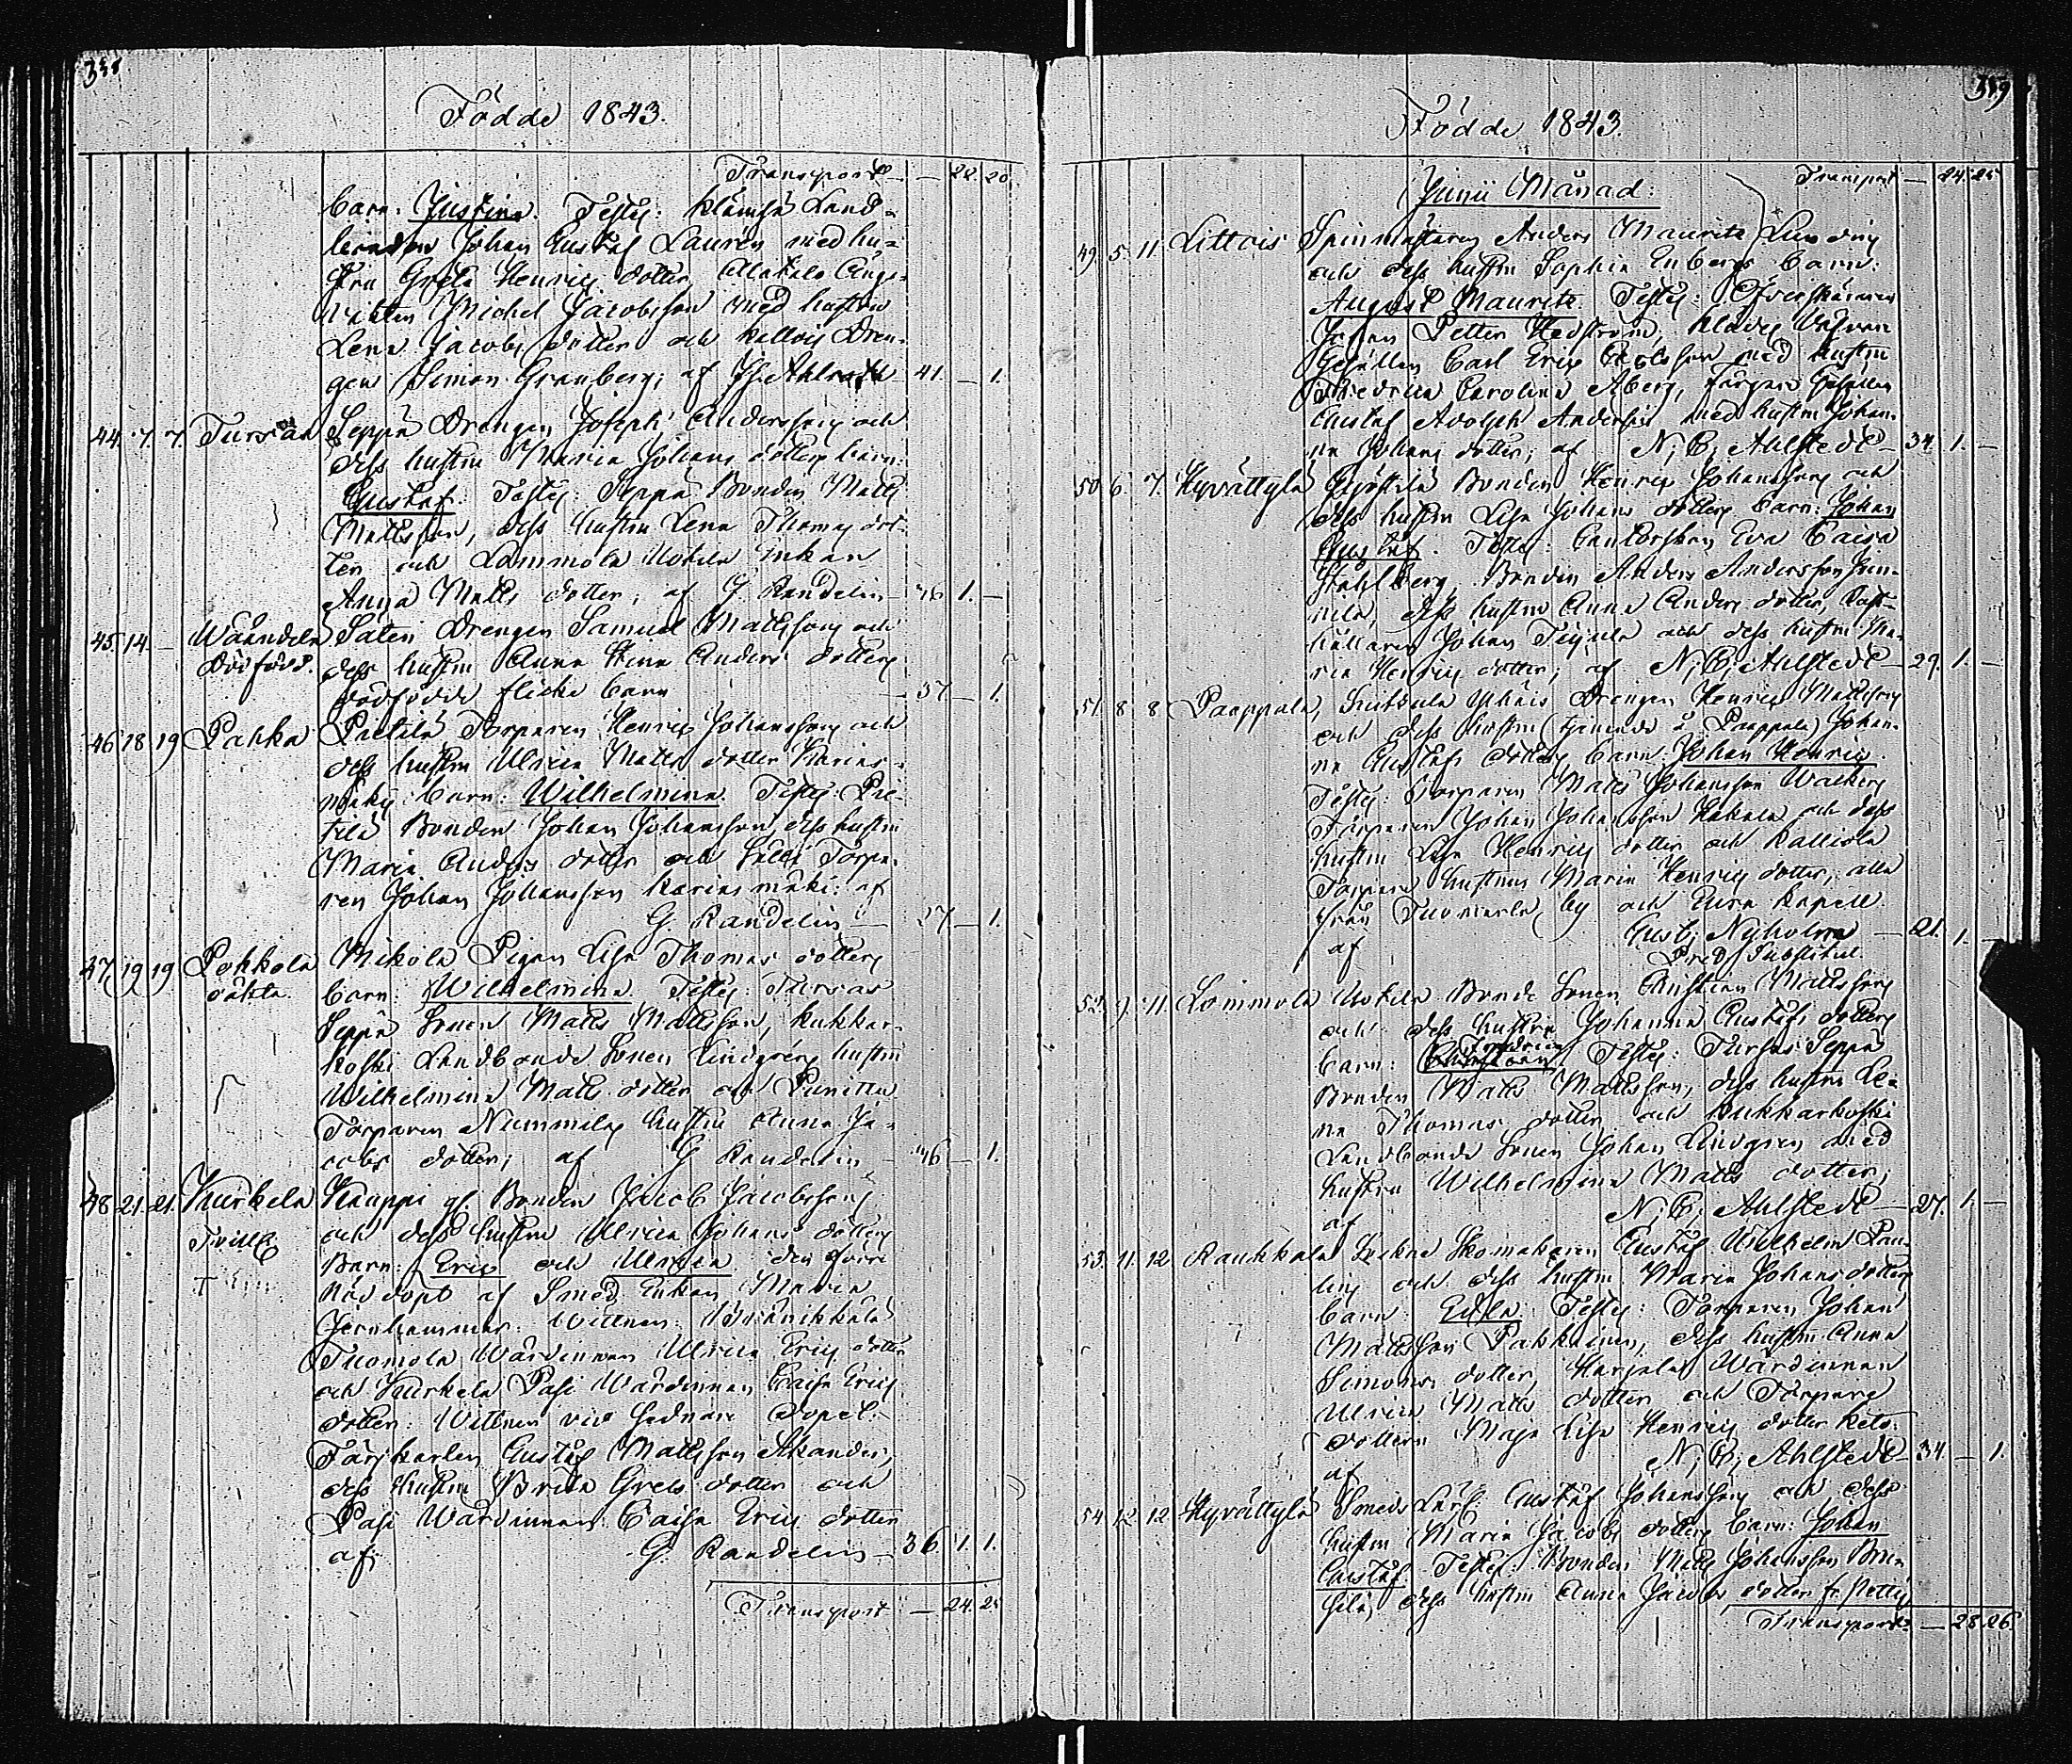 358
Födde 1843.
Transport — 22. 20
barn: Justina. Testes: Land-
Johan Gustaf Laurén med hu-
stru Greta Henrics dotter,
Michel Jacobsson med hustru
Lena Jacobs dotter och Dren-
gen Simon Granberg; af Ahlstedt 41. — 1.
44. 7. 7. Tursas Seppä Drengen Joseph Anderssons och
dess hustru Maria Johans dotters barn:
Gustaf. Testes: Seppä Bonden Matts
Mattsson, dess hustru Lena Thomas dot-
ter och Lammola Uotila Enkan
Anna Matts dotter; af G. Randelin 46 1. —
45. 14. — Wäändelä Satin Drengen Samuel Mattssons och
Dödfödd. dess hustru Anna Stina Anders dotters
dödfödde flicke barn — 37 — 1.
46 18 19 Pahka Pietilä Torparen Henrics Johanssons och
dess hustru Ulrica Matts dotter Karias-
mäkis barn: Wilhelmina. Testes: Pie-
tilä Bonden Johan Johansson, dess hustru
Maria Anders dotter och Torpa-
ren Johan Johansson Kariasmäki: af
G. Randelin — 27 — 1.
47 19 19 Pohkola Mikola Pigan Lisa Thomas dotters
oäkta. barn: Wilhelmina. Testes: Tursas
Seppä Sonen Matts Mattsson, Kukkar-
koski Landbonde Sonen Lindgrens hustru
Wilhelmina Matts dotter och Punittu
Torparen Nummilas hustru Anna Ja-
cobs dotter; af G. Randelin — 46 — 1.
48 21. 21. Kurkela Kauppi gl. Bonden Jacob Jacobssons
Tvill. och dess hustru Ulrica Johans dotters
Barn: Eric och Ulrica den förre
nöddöpt af Smeds Enkan Maria
Jernhammar. Wittnen:
Tuomola Wärdinnan Ulrica Erics dotter
och Kurkela Pasi Wärdinnan Caisa Erics
dotter. Wittnen vid sednare Döpet:
Färjkarlen Gustaf Mattsson Akander,
dess hustru Brita Grels dotter och
Pasi Wärdinnan Caisa Erics dotter
af G. Randelin — 36 1. 1.
Transport — 24. 25
359
Födde 1843.
Transport — 24. 25
Junii Månad.
49. 5. 11 Littois Spinnmästaren Anders Maurits
och dess hustru Sophia Enbergs barn:
August Maurits. Testes: Öfverskäraren
Johan Petter Hedström, Klädes Väfvare
Gesällen Carl Eric Carlsson med hustru
Fredrica Carolina Åberg, Färgare Gesällen
Gustaf Adolph Andersin med hustru Johan-
na Johans dotter; af N; C; Ahlstedt — 34. 1. —
50 6. 7. Hyvättylä Bonden Henrics Johanssons och
dess hustru Lisa Johans dotters barn: Johan
Gustaf. Testes: Cantorskan Eva Caisa
Ståhlberg, Bonden Anders Andersson
dess hustru Anna Anders dotter, Rust-
hållaren Johan och dess hustru Ma-
ria Henrics dotter; af N; C; Ahlstedt — 29. 1. —
51. 8 8 Paappala, Drengen Henrics Mattssons
och dess hustru (tjenande å Paappala) Johan-
na Gustafs dotters barn: Johan Henric.
Testes: Torparen Matts Johansson Walberg
Torparen Johan Johansson Hakala och dess
hustru Lisa Henrics dotter och Kalliola
Torpare hustrun Maria Henrics dotter; alla
från by och Eura Kapell.
af Gust; Nyholm — 21. 1. —
Pred; Substitut.
52. 9. 11. Lammola Uotila Bonde Sonen Christian Mattssons
och dess hustru Johanna Gustafs dotters
barn: Fredrica Testes: Tursas Seppä
Bonden Matts Mattsson, dess hustru Le-
na Thomas dotter och Kukkarkoski
Landbonde Sonen Johan Lindgren med
hustru Wilhelmina Matts dotter;
af N; C; Ahlstedt — 27. 1. —
53. 11. 12 Raukkala Skomakaren Gustaf Wilhelm
och dess hustru Maria Johans dotters
barn: Edla. Testes: Torparen Johan
Mattsson Pahkainen, dess hustru Anna
Simons dotter, Harjola Wärdinnan
Ulrica Matts dotter och Torpare
dottern Maja Lisa Henrics dotter
af N; C; Ahlstedt — 34. — 1.
54 12 12 Hyvättylä Smeds Lärl. Gustaf Johanssons och dess
hustru Maria Jacobs dotters barn: Johan
Gustaf. Testes: Bonden Matts Johansson
dess hustru Anna Jacobs dotter
Transport — 28 26.